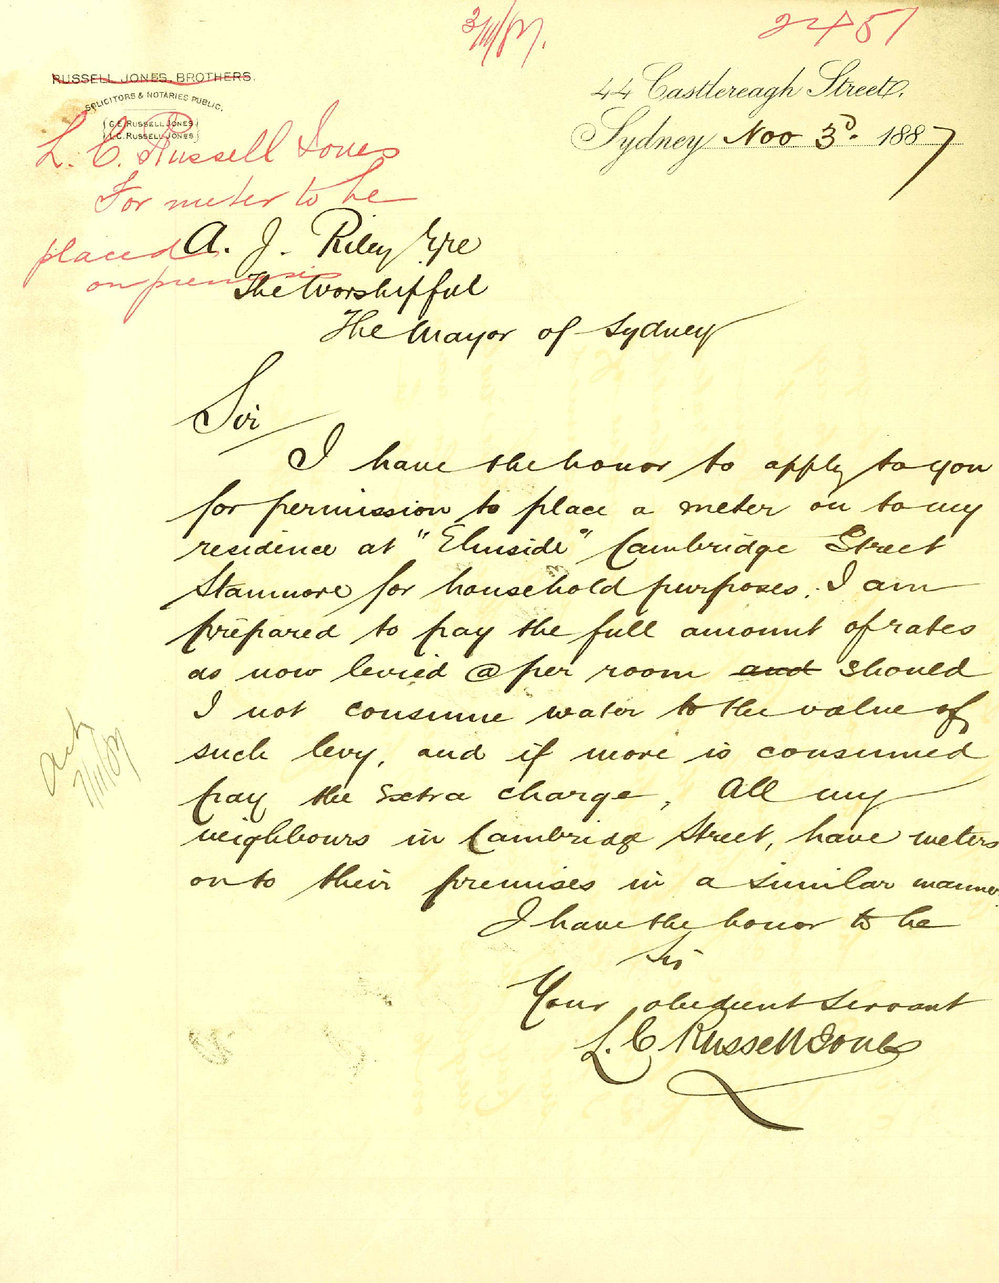 3/11/87.
2451
RUSSELL JONES BROTHERS.
SOLICITORS & NOTARIES PUBLIC.
C.E. RUSSELL JONES
L.C. RUSSELL JONES
44 Castlereagh Street,
Sydney Nov 3d. 1887
L. C. Russell Jones
For meter to be
placed
on premises
A. J. Riley Esqre
The Worshipful
The Mayor of Sydney
Sir
I have the honor to apply to you
for permission to place a meter on to my
residence at "Elmside" Cambridge Street
Stanmore for household purposes. I am
prepared to pay the full amount of rates
as now levied @ per room and should
I not consume water to the value of
such levy, and if more is consumed
pay the extra charge, All my
neighbours in Cambridge Street, have meters
on to their premises in a similar manner.
I have the honor to be
Sir
Your obedient servant
L. C Russell Jones
7/11/87